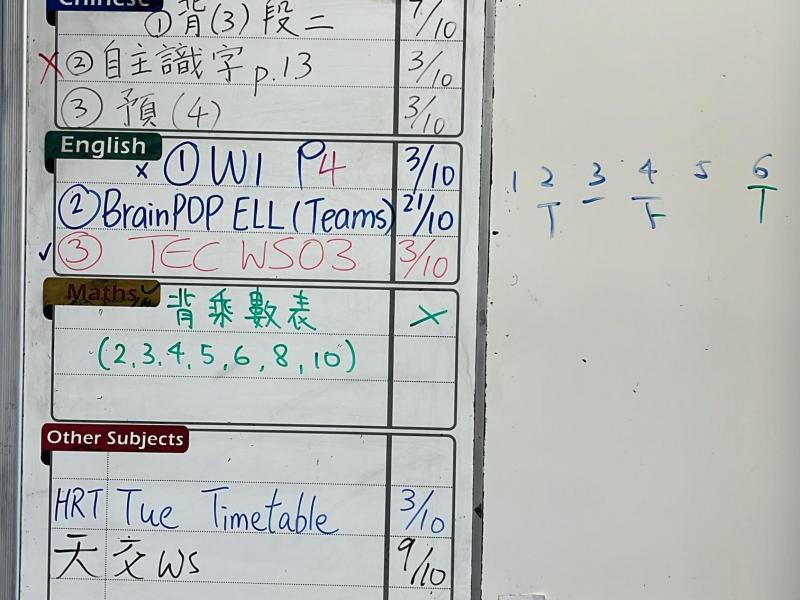 Chinese
① 背(3) 段二 7/10
× ② 自主識字 p.13 3/10
③ 預(4) 3/10
English
× ① W1 P4 3/10
② BrainPOP ELL (Teams) 21/10
✓ ③ TEC WS03 3/10
Maths ✓
背乘數表 ×
(2,3,4,5,6,8,10)
Other Subjects
HRT Tue Timetable 3/10
天 交 WS 9/10
1 2 3 4 5 6
T – F T